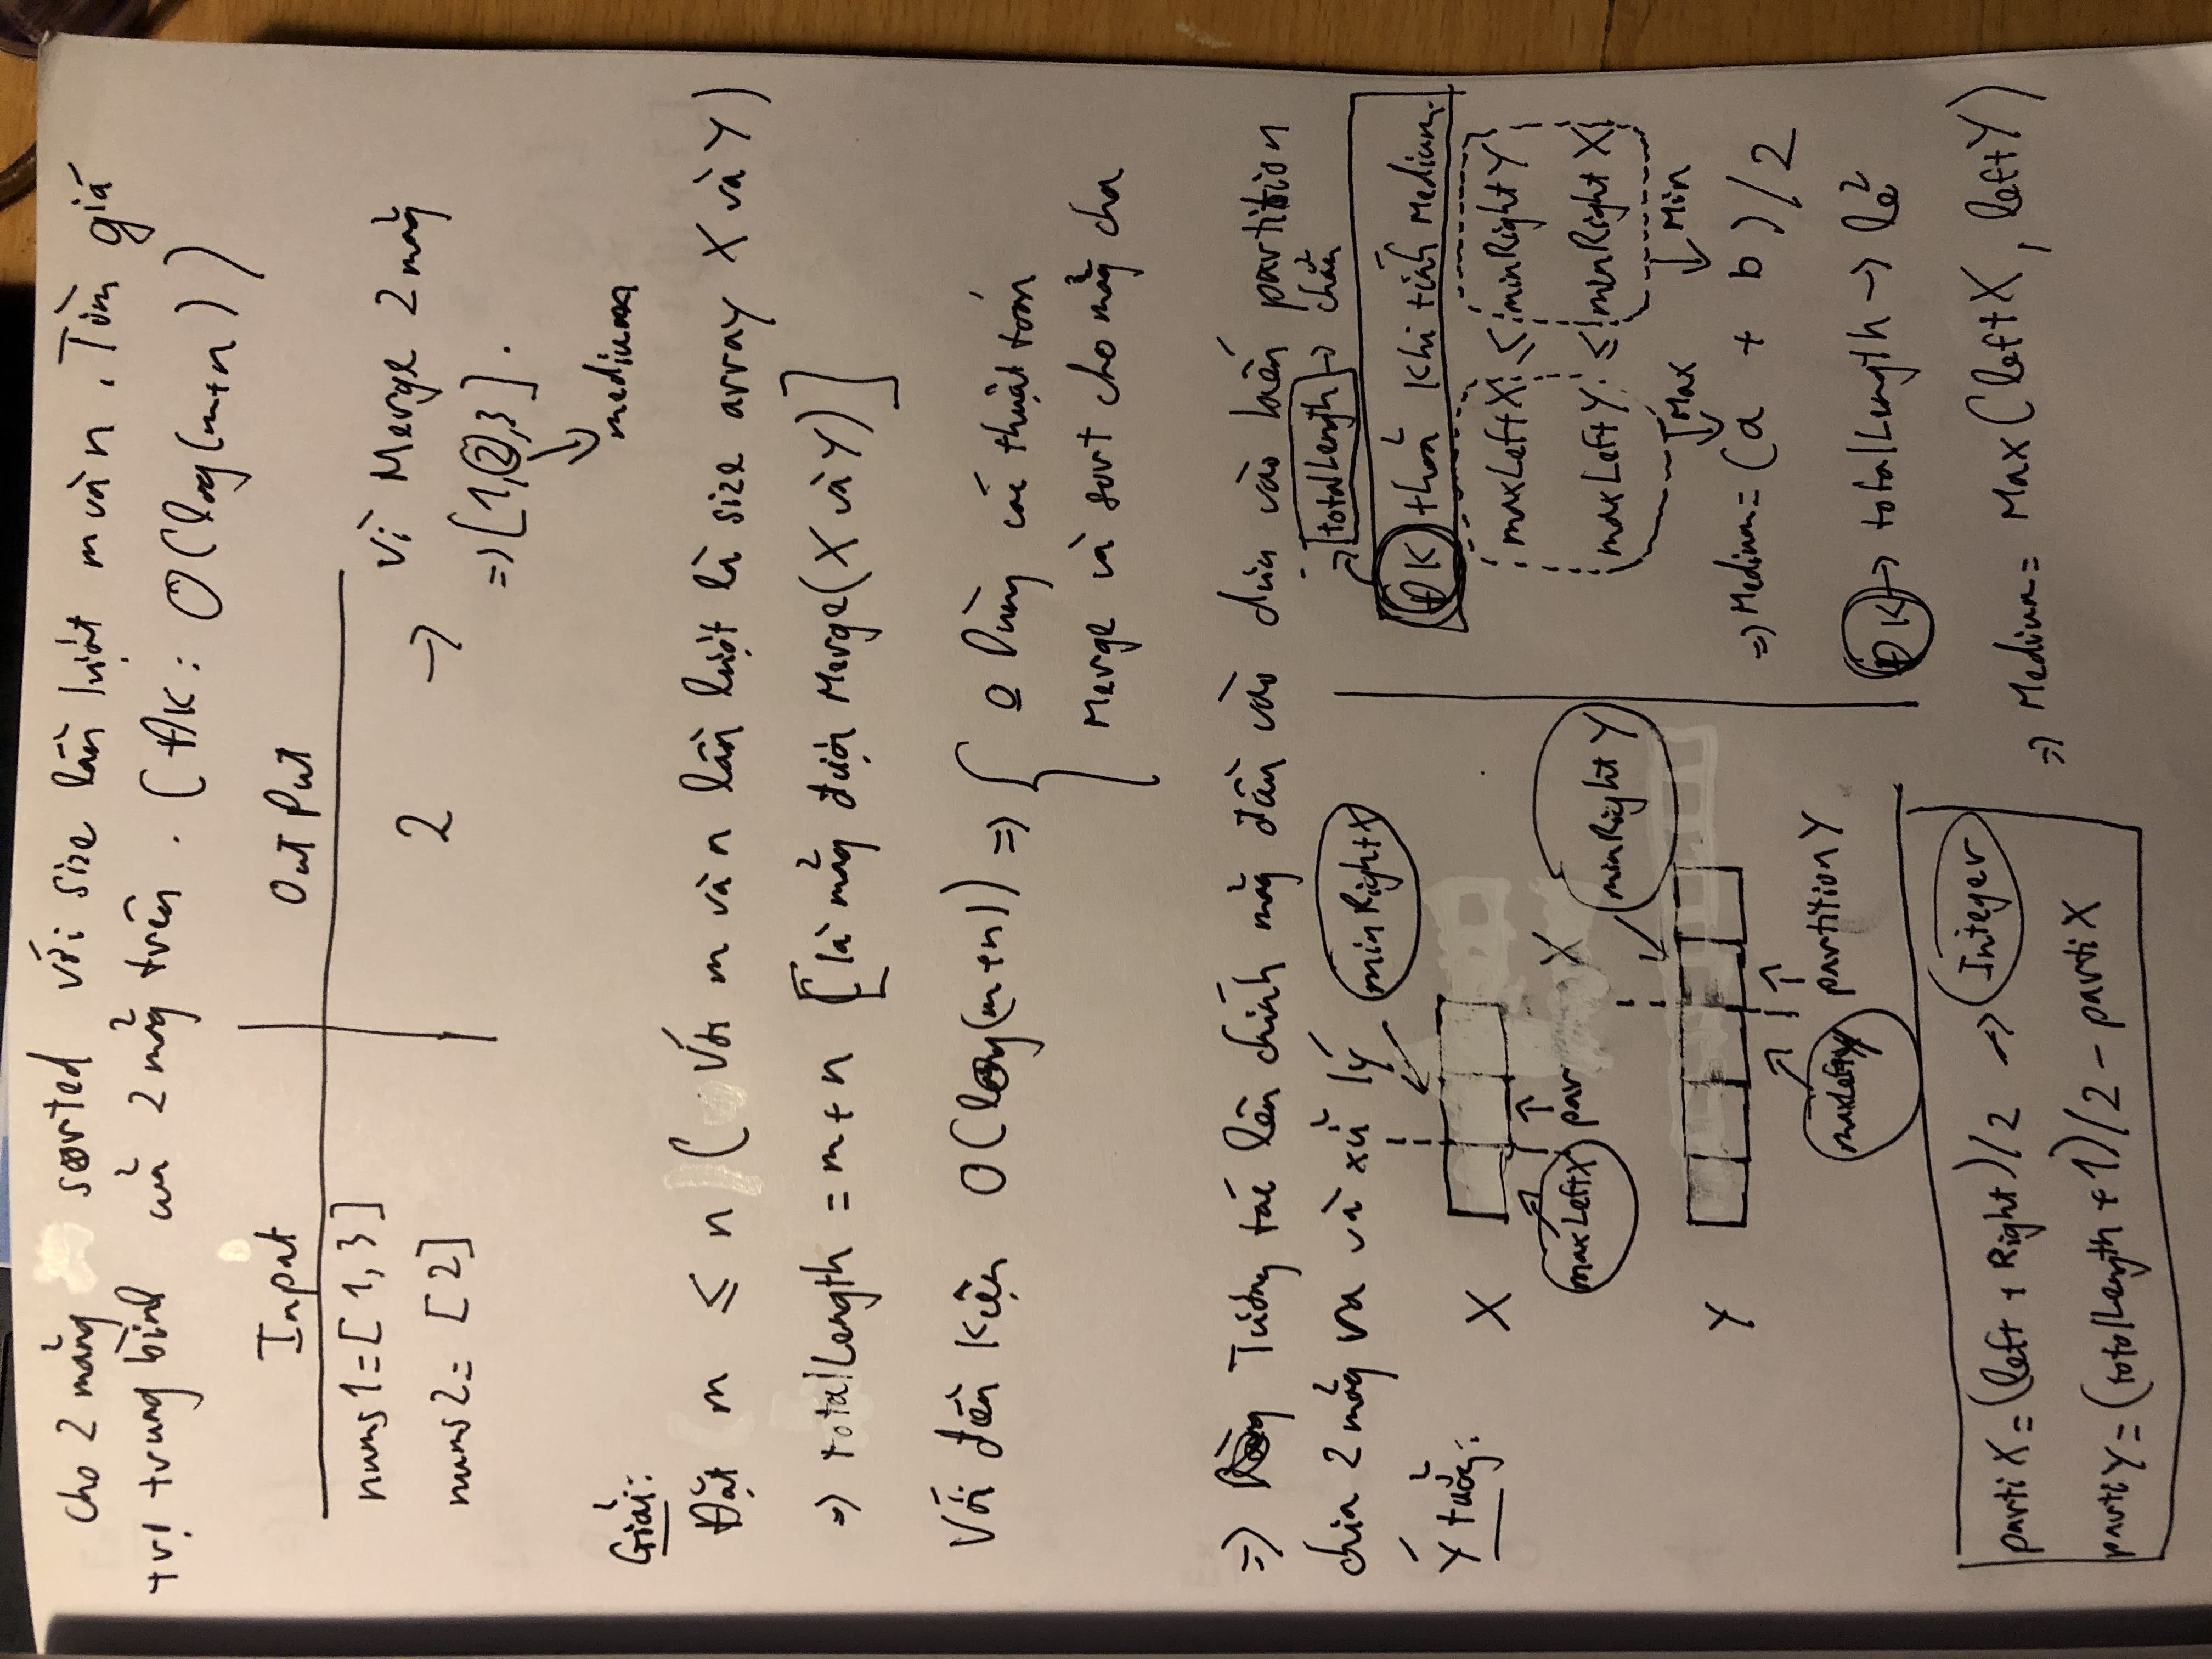 Cho 2 mảng sorted với size lần lượt m và n. Tìm giá
trị trung bình của 2 mảng trên. (ĐK: O(log(m+n))
Input
Output
nums1=[1,3]
nums2= [2]
2 → Vì Merge 2 mảng
=> [1,2,3].
medium
Giải:
Đặt m ≤ n ( Với m và n lần lượt là size array X và Y)
=> totalLength = m + n [là mảng được Merge(X và Y)]
Với điều kiện O(log(m+n)) => { Dùng các thuật toán
Merge và sort cho mảng cha
=> Tương tác lên chính mảng đầu vào dựa vào biến partition
chia 2 mảng ra và xử lý
Ý tưởng:
minRightX
X
maxLeftX par X
minRight Y
Y
maxLeftY partitionY
partiX = (left + Right)/2 → Integer
partiY = (totalLength + 1)/2 - partiX
totalLength → chẵn
ĐK thoả khi tính Medium.
maxLeftX ≤ minRight Y
maxLeftY ≤ minRight X
Max Min
=> Medium = (a + b)/2
ĐK → totalLength → lẻ
=> Medium = Max(leftX, leftY)